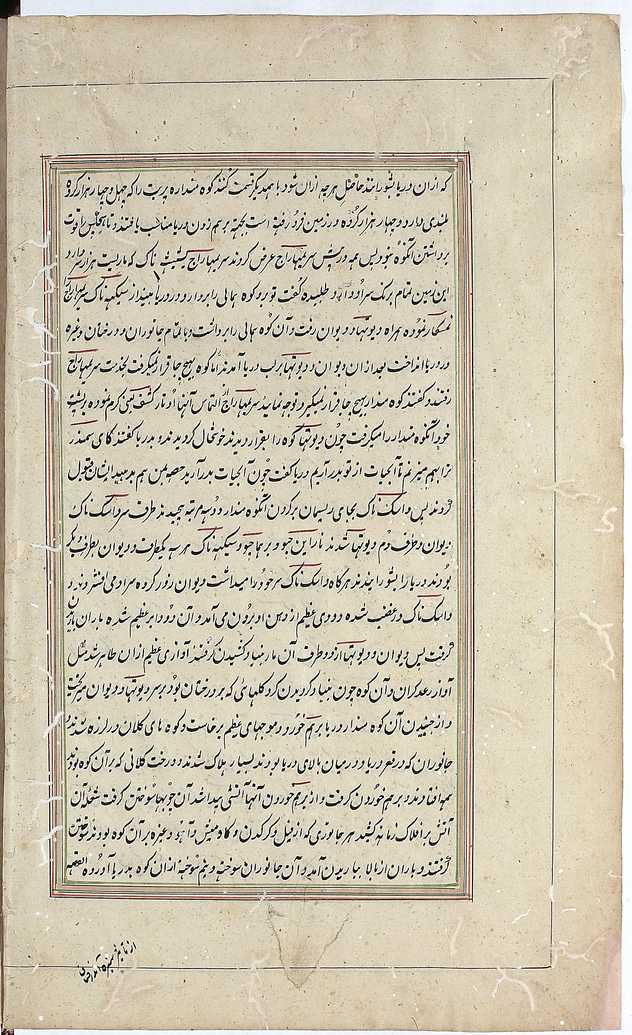 که از آن دریا بشورانند حاصل هرچه ازان شود با همدیگر قسمت کنند کوه مندار پربت را که چهل و چهار هزار کروه
بلندی دارد و چهار هزار کروه در زمین فرو رفته است بجهة برهم زدن دریا مناسب یافتند و تا هیچکس را قوت
برداشتن آنکوه نبود پس همه در پیش سریمهاراج عرض کردند سریمهاراج ناک که مار بیست هزار سر دارد
این زمین تمام برنک سر او طلبیده گفت تو برو کوه را بردار و در دریا بینداز سیکهه ناک سریمهاراج
نمسکار نموده همراه دیوتهاو دیوان رفت و آن کوه را برداشت و با تمام جانوران و درختان وغیره
در دریا انداخت بعد از آن دیوان و دیوتها بر لب دریا آمدند اما کوه بهیچ جا قرار نمیگرفت بخدمت سریمهاراج
رفتند و گفتند کوه مندار بهیچ جا قرار نمیگیرد توجه نمایید سریمهاراج التماس آنها اوتار کشف یعنی کرم نموده بر پشت
خود آنکوه مندار را میگرفت چون دیوتها کوه را بقرار دیدند خوشحال گردیدند و بدریا گفتند کای سمندر
ترا بهم میزنم تا آبحیات از تو بدر آریم دریا گفت چون آبحیات بدر آرید حصه من هم بدهید ایشان قبول
کردند پس باسک ناک بجای ریسمان بر کردن آنکوه مندار دو سه مرتبه پیچیدند طرف سر باسک ناک
دیوان و طرف دم دیوتها شدند ناراین جیو و برهما جیو و سیکهه ناک هر سه یکطرف و دیوان بطرف دیگر
بودند دریا را بشورانیدند هرگاه باسک ناک سر خود را میداشت دیوان زور کرده سر او می افشردند و
باسک ناک در غضب شده دودی عظیم از دهن او بیرون می آمد و آن دود ابر عظیم شده باران باریدن
گرفت پس دیوان و دیوتها از دو طرف آن مار بنیاد کشیدن کردند آوازی عظیم ازان ظاهر شد مثل
آواز رعد گران و آن کوه چون بنیاد گردیدن کرد گلهای که بر درختان بود بر سر دیوتها و دیوان میریخت
و از جنبیدن آن کوه مندار دریا برهم خورد و موجهای عظیم برخاست و کوه های کلان در لرزه شدند و
جانوران که در قعر دریا و در میان بالای دریا بودند بسیار هلاک شدند و درخت کلانی که بر آن کوه بودند
همه افتادند و برهم خوردن گرفت و از برهم خوردن آنها آتشی پیدا شد آن چوبها سوختن گرفت شعله آن
آتش بر افلاک زمانه کشید هر جانوری که از فیل و کرگدن و گاومیش و آهو وغیره بر آن کوه بودند سوختن
گرفتند و باران از بالا بباریدن آمد و آن جانوران سوخته و نیم سوخته از ان کوه بدریا آورده القصه